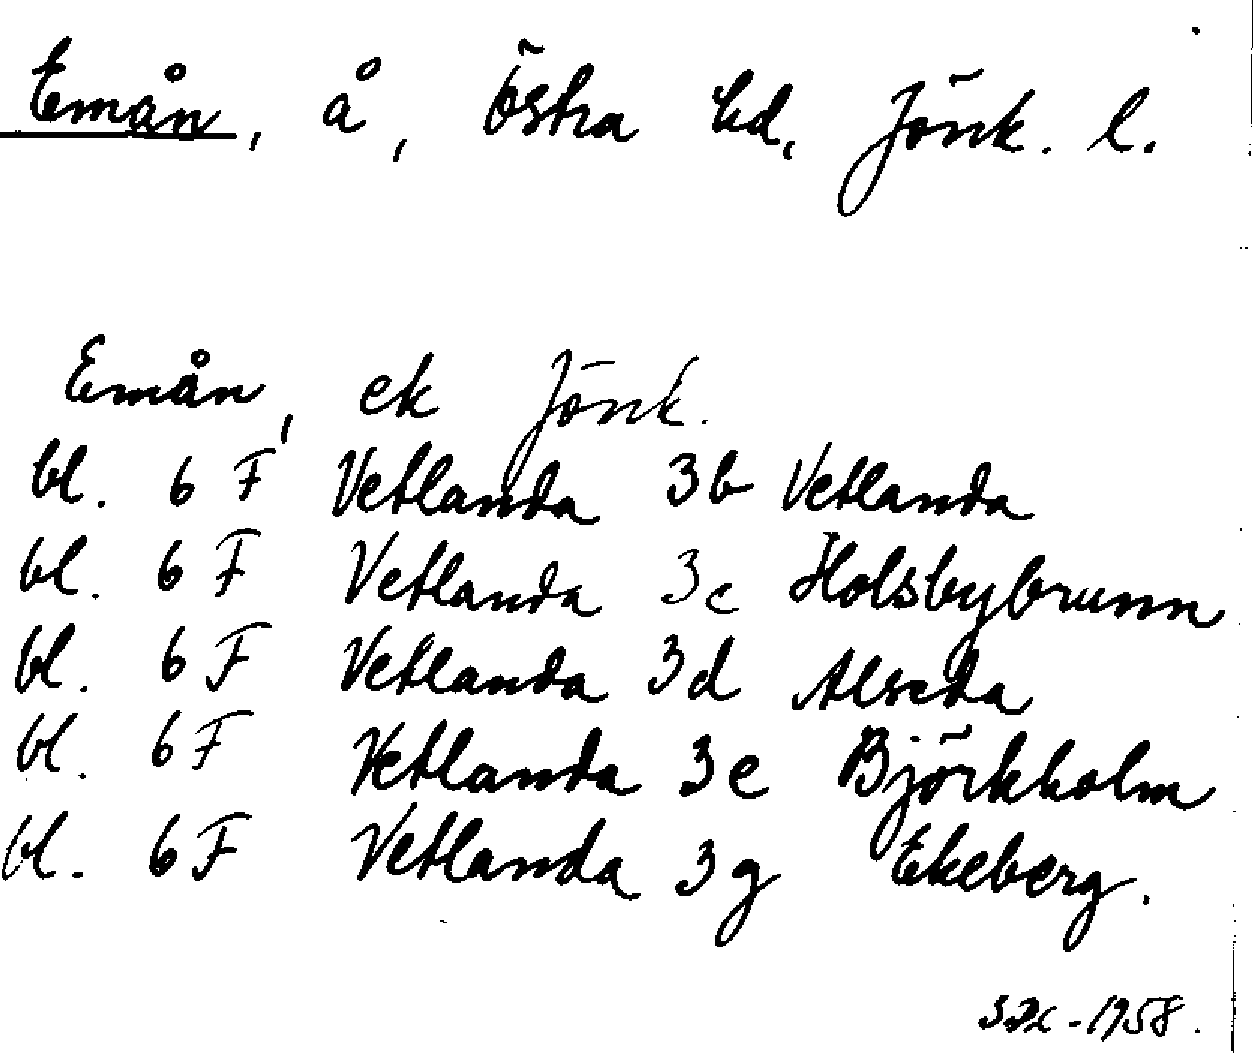 Emån, å, Östra hd, Jönk. l.
Emån, ek Jönk.
bl. 6 F Vetlanda 3b Vetlanda
bl. 6 F Vetlanda 3c Holsbybrunn
bl. 6 F Vetlanda 3d Alseda
bl. 6 F Vetlanda 3e Björkholm
bl. 6 F Vetlanda 3g Ekeberg.
1958.